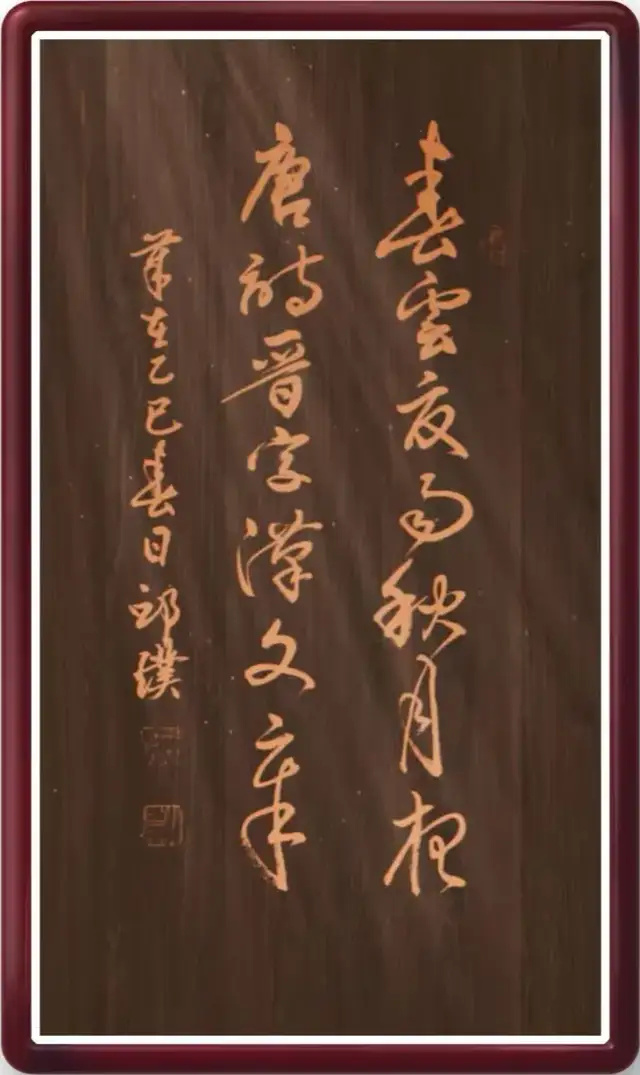 春雲夏雨秋月夜
唐詩晋字漢文章
在乙巳春日邱璞